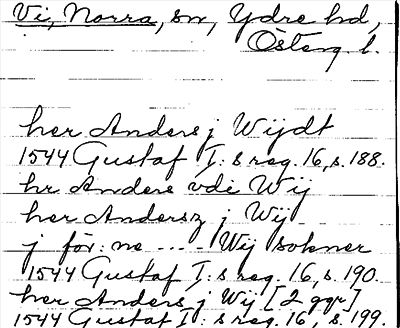 Vi, Norra, sn, Ydre hd,
Österg. l.
her Anders j Wijdt
1544 Gustaf I:s reg. 16, s. 188.
hr Anders vdi Wij
her Andersz j Wij
j för:ne .... Wij sokner
1544 Gustaf I:s reg. 16, s. 190.
her Anders j Wij [2 ggr]
1544 Gustaf I:s reg. 16, s. 199.